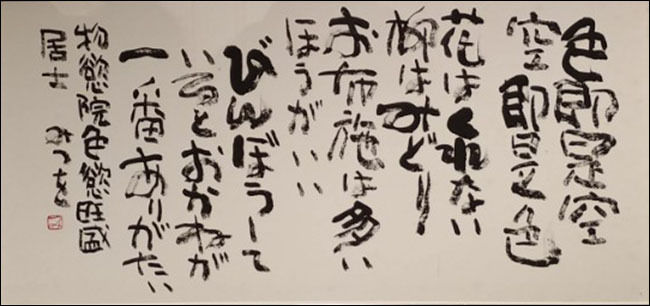 色即是空
空即是色
花はくれない
柳はみどり
お布施は多い
ほうがいい
びんぼうして
いるとおかねが
一番ありがたい
物慾院色慾旺盛
居士 みつを